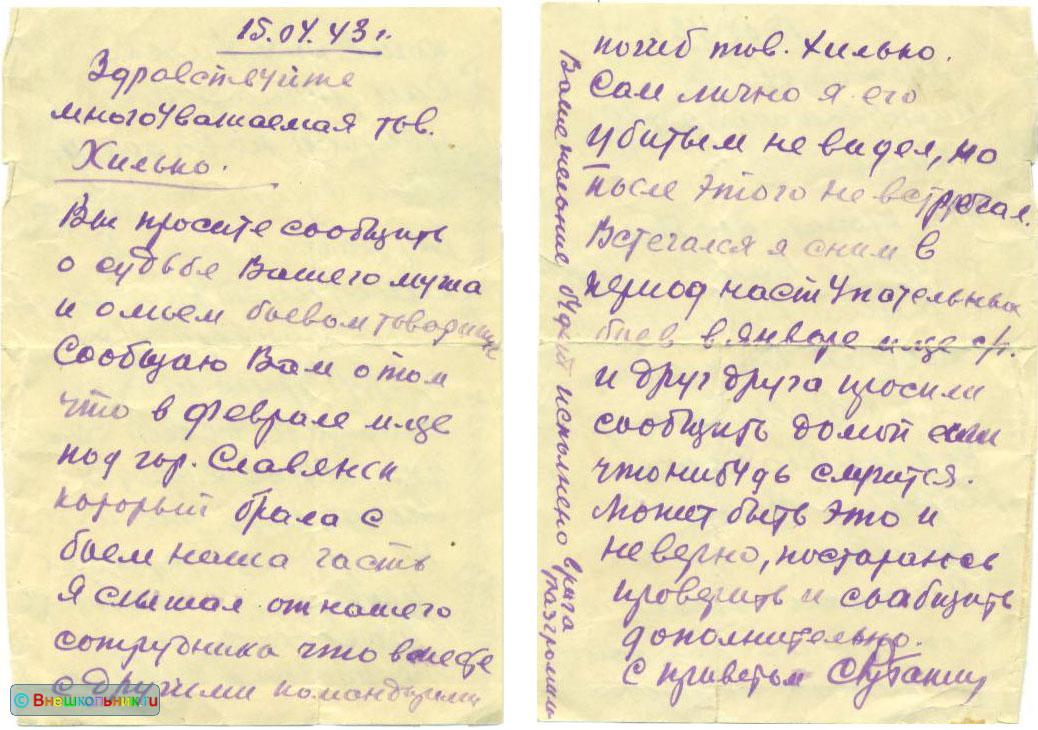 15.04.43 г.
Здравствуйте
многоуважаемая тов.
Хилько.
Вы просите сообщить
о судьбе Вашего мужа
и о моем боевом товарище
Сообщаю Вам о том
что в феврале м-це
под гор. Славянск
который брала с
боем наша часть
Я слышал от нашего
сотрудника что вместе
с другими командирами
погиб тов. Хилько.
Сам лично я его
убитым не видел, но
после этого не встречал.
Встечался я с ним в
период наступательных
боев в январе м-це с/г.
и друг друга просили
сообщить домой если
что нибудь случится.
Может быть это и
не верно, постараюсь
проверить и сообщить
дополнительно.
С приветом
Ваше желание будет исполнено врага
разгромим
© Внешкольник.ru